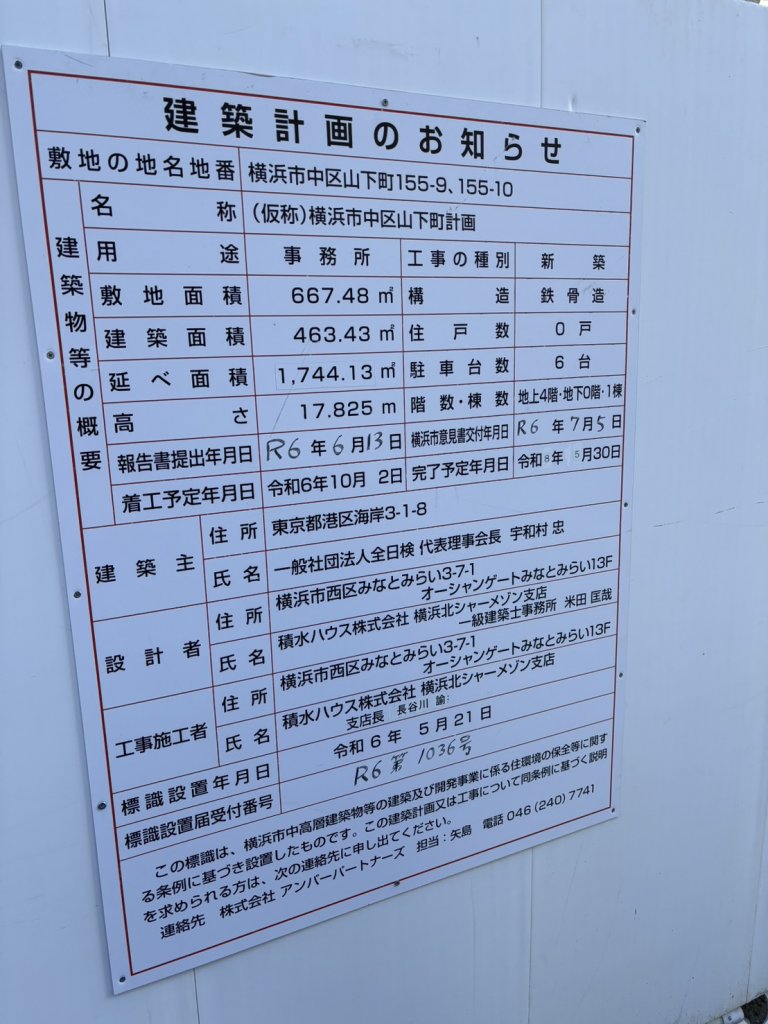 建築計画のお知らせ
敷地の地名地番 横浜市中区山下町155-9、155-10
建築物等の概要
名称 (仮称)横浜市中区山下町計画
用途 事務所 工事の種別 新築
敷地面積 667.48㎡ 構造 鉄骨造
建築面積 463.43㎡ 住戸数 0戸
延べ面積 1,744.13㎡ 駐車台数 6台
高さ 17.825m 階数・棟数 地上4階・地下0階・1棟
報告書提出年月日 R6年6月13日 横浜市意見書交付年月日 R6年7月5日
着工予定年月日 令和6年10月2日 完了予定年月日 令和8年5月30日
建築主 住所 東京都港区海岸3-1-8
氏名 一般社団法人全日検 代表理事会長 宇和村 忠
設計者 住所 横浜市西区みなとみらい3-7-1
オーシャンゲートみなとみらい13F
氏名 積水ハウス株式会社 横浜北シャーメゾン支店
一級建築士事務所 米田 匡哉
工事施工者 住所 横浜市西区みなとみらい3-7-1
オーシャンゲートみなとみらい13F
氏名 積水ハウス株式会社 横浜北シャーメゾン支店
支店長 長谷川 諭
標識設置年月日 令和6年5月21日
標識設置届受付番号 R6第1036号
この標識は、横浜市中高層建築物等の建築及び開発事業に係る住環境の保全等に関す
る条例に基づき設置したものです。この建築計画又は工事について同条例に基づく説明
を求められる方は、次の連絡先に申し出てください。
連絡先 株式会社 アンバーパートナーズ 担当:矢島 電話 046(240)7741